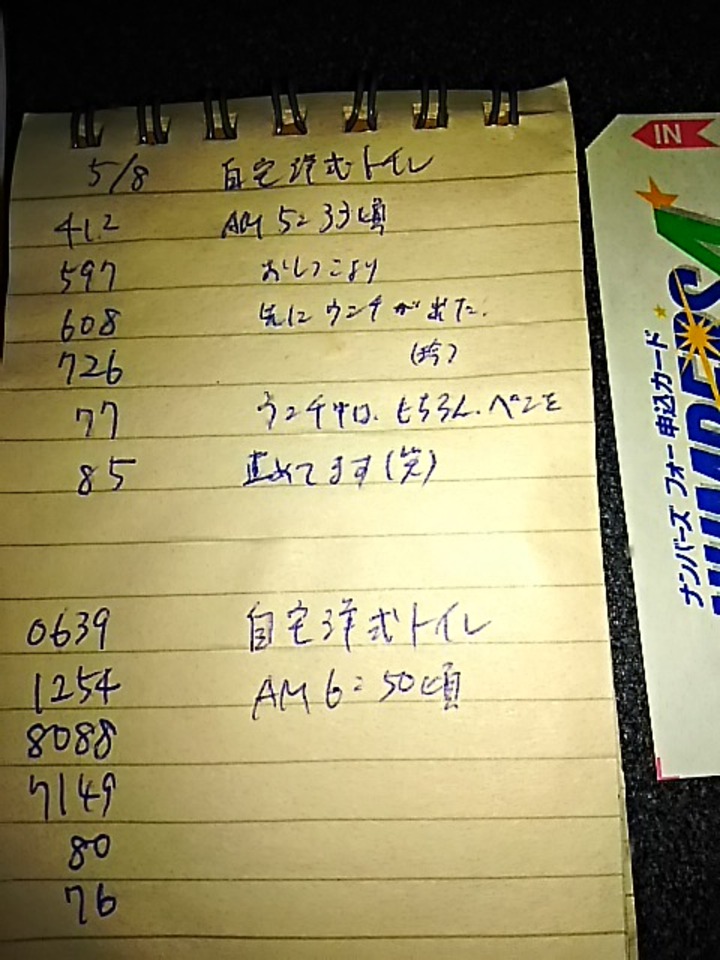 5/8 自宅洋式トイレ
412 AM 5:33頃
597 おしっこより
608 先にウンチが出た.
726
77 ウンチ中は、もちろん、ペンを
85 止めてます(笑)
0639 自宅洋式トイレ
1254 AM 6:50頃
8088
7149
80
76
IN
ナンバーズ フォー 申込カード
NUMBERS 4